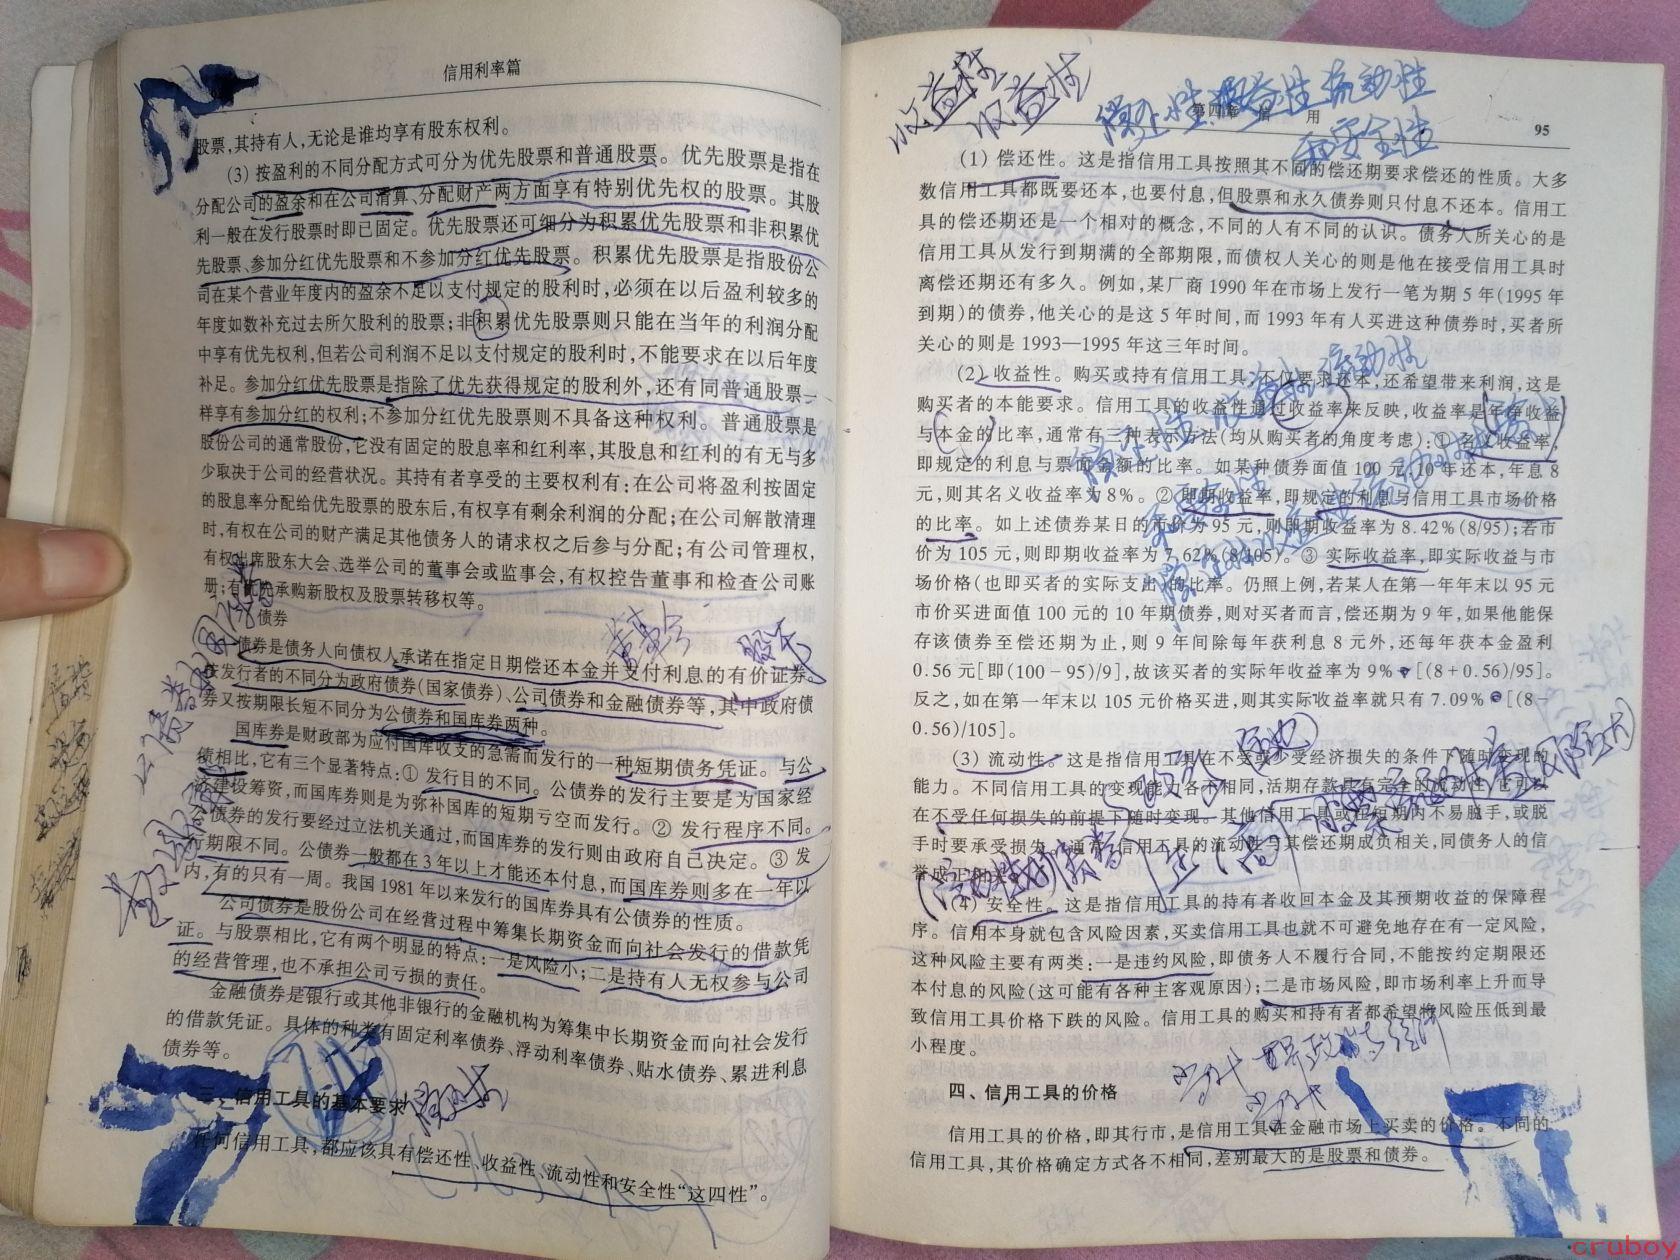 信用利率篇
股票,其持有人,无论是谁均享有股东权利。
(3) 按盈利的不同分配方式可分为优先股票和普通股票。优先股票是指在
分配公司的盈余和在公司清算、分配财产两方面享有特别优先权的股票。其股
利一般在发行股票时即已固定。优先股票还可细分为积累优先股票和非积累优
先股票、参加分红优先股票和不参加分红优先股票。积累优先股票是指股份公
司在某个营业年度内的盈余不足以支付规定的股利时,必须在以后盈利较多的
年度如数补充过去所欠股利的股票;非积累优先股票则只能在当年的利润分配
中享有优先权利,但若公司利润不足以支付规定的股利时,不能要求在以后年度
补足。参加分红优先股票是指除了优先获得规定的股利外,还有同普通股票一
样享有参加分红的权利;不参加分红优先股票则不具备这种权利。普通股票是
股份公司的通常股份,它没有固定的股息率和红利率,其股息和红利的有无与多
少取决于公司的经营状况。其持有者享受的主要权利有:在公司将盈利按固定
的股息率分配给优先股票的股东后,有权享有剩余利润的分配;在公司解散清理
时,有权在公司的财产满足其他债务人的请求权之后参与分配;有公司管理权,
有权出席股东大会、选举公司的董事会或监事会,有权控告董事和检查公司账
册;有优先承购新股权及股票转移权等。
债券
董事会 股东
债券是债务人向债权人承诺在指定日期偿还本金并支付利息的有价证券。
按发行者的不同分为政府债券(国家债券)、公司债券和金融债券等,其中政府债
券又按期限长短不同分为公债券和国库券两种。
国库券是财政部为应付国库收支的急需而发行的一种短期债务凭证。与公
债相比,它有三个显著特点:① 发行目的不同。公债券的发行主要是为国家经
济建设筹资,而国库券则是为弥补国库的短期亏空而发行。② 发行程序不同。
公债券的发行要经过立法机关通过,而国库券的发行则由政府自己决定。③ 发
行期限不同。公债券一般都在3年以上才能还本付息,而国库券则多在一年以
内,有的只有一周。我国1981年以来发行的国库券具有公债券的性质。
公司债券是股份公司在经营过程中筹集长期资金而向社会发行的借款凭
证。与股票相比,它有两个明显的特点:一是风险小;二是持有人无权参与公司
的经营管理,也不承担公司亏损的责任。
金融债券是银行或其他非银行的金融机构为筹集中长期资金而向社会发行
的借款凭证。具体的种类有固定利率债券、浮动利率债券、贴水债券、累进利息
债券等。
三、信用工具的基本要求
任何信用工具,都应该具有偿还性、收益性、流动性和安全性“这四性”。
收益性
收益性
偿还性 收益性 流动性
和安全性
第四章 信 用
95
(1) 偿还性。这是指信用工具按照其不同的偿还期要求偿还的性质。大多
数信用工具都既要还本,也要付息,但股票和永久债券则只付息不还本。信用工
具的偿还期还是一个相对的概念,不同的人有不同的认识。债务人所关心的是
信用工具从发行到期满的全部期限,而债权人关心的则是他在接受信用工具时
离偿还期还有多久。例如,某厂商1990年在市场上发行一笔为期5年(1995年
到期)的债券,他关心的是这5年时间,而1993年有人买进这种债券时,买者所
关心的则是1993—1995年这三年时间。
(2) 收益性。购买或持有信用工具,不仅要求还本,还希望带来利润,这是
购买者的本能要求。信用工具的收益性通过收益率来反映,收益率是年净收益
与本金的比率,通常有三种表示方法(均从购买者的角度考虑):① 名义收益率,
即规定的利息与票面金额的比率。如某种债券面值100元,10年还本,年息8
元,则其名义收益率为8%。② 即期收益率,即规定的利息与信用工具市场价格
的比率。如上述债券某日的市价为95元,则即期收益率为8.42%(8/95);若市
价为105元,则即期收益率为7.62%(8/105)。③ 实际收益率,即实际收益与市
场价格(也即买者的实际支出)的比率。仍照上例,若某人在第一年年末以95元
市价买进面值100元的10年期债券,则对买者而言,偿还期为9年,如果他能保
存该债券至偿还期为止,则9年间除每年获利息8元外,还每年获本金盈利
0.56元[即(100-95)/9],故该买者的实际年收益率为9% [(8+0.56)/95]。
反之,如在第一年末以105元价格买进,则其实际收益率就只有7.09% [(8-
0.56)/105]。
(3) 流动性。这是指信用工具在不受或少受经济损失的条件下随时变现的
能力。不同信用工具的变现能力各不相同,活期存款具有完全的流动性,它可以
在不受任何损失的前提下随时变现。其他信用工具或在短期内不易脱手,或脱
手时要承受损失。通常,信用工具的流动性与其偿还期成负相关,同债务人的信
誉成正相关。
(4) 安全性。这是指信用工具的持有者收回本金及其预期收益的保障程
序。信用本身就包含风险因素,买卖信用工具也就不可避免地存在有一定风险,
这种风险主要有两类:一是违约风险,即债务人不履行合同,不能按约定期限还
本付息的风险(这可能有各种主客观原因);二是市场风险,即市场利率上升而导
致信用工具价格下跌的风险。信用工具的购买和持有者都希望将风险压低到最
小程度。
四、信用工具的价格
信用工具的价格,即其行市,是信用工具在金融市场上买卖的价格。不同的
信用工具,其价格确定方式各不相同,差别最大的是股票和债券。
cruboy